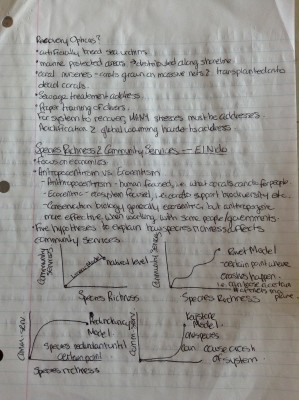 Recovery Options?
• artificially breed sea urchins
• marine protected areas → distributed along shoreline
• coral nurseries - corals grown on massive nets & transplanted onto
dead corals
• Sewage treatment address
• Proper training of divers.
For system to recover, MANY stresses must be addresses
Acidification & global warming harder to address
Species Richness & Community Services -- El Niño
• Focus on economics
• Anthropocentrism vs. Ecocentrism
- Anthropocentrism - human focused, i.e. what corals can do for people
- Ecocentric - ecosystem focused, i.e. corals support biodiversity etc.
- Conservation biology generally ecocentric but anthropoc.
more effective when working with some people/governments.
• Five hypotheses to explain how species richness affects
community services.
Community Services
Linear Model
natural level
Species Richness
Community Services
Rivet Model
- certain point where
crashes happen
i.e. can lose a certain
# of rivets in a
plane
Species Richness
Comm. serv.
Redundancy
Model
Species redundant until
certain point
Species richness
Comm. serv.
Keystone
Model
species
can cause crash
of system.